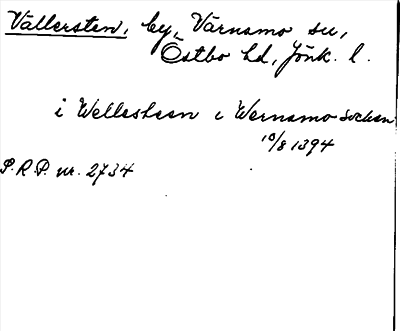 Vällersten, by, Värnamo sn,
Östbo hd, Jönk. l.
i Wellesteen i Wernamo Socken
10/8 1394
P.R.P. nr. 2734